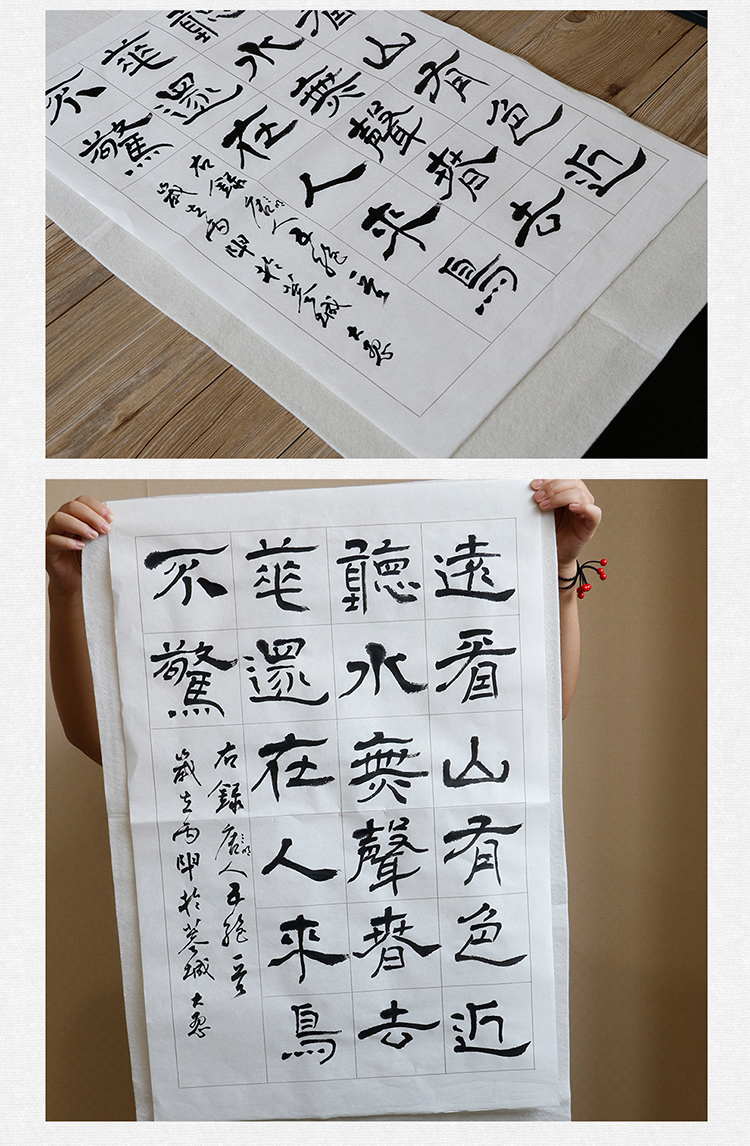 看山有色近
聽水無聲春去
華還在人來鳥
不驚
右錄唐人五絕一首
歲在丙申於蓉城 大忍
遠看山有色近
聽水無聲春去
華還在人來鳥
不驚
右錄唐人五絕一首
歲在丙申於蓉城 大忍